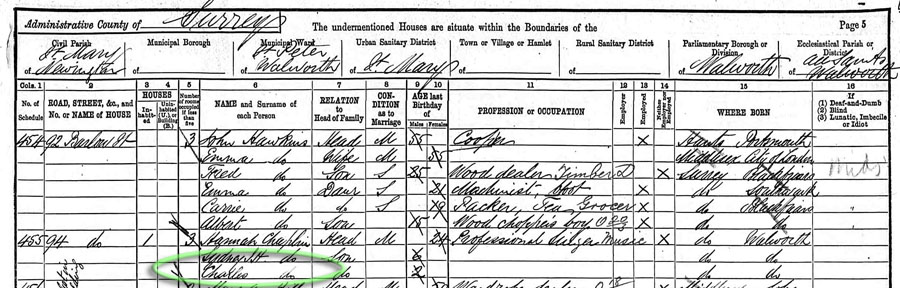 Administrative County of Surrey The undermentioned Houses are situate within the Boundaries of the Page 5
Civil Parish Municipal Borough Municipal Ward Urban Sanitary District Town or Village or Hamlet Rural Sanitary District Parliamentary Borough or Division Ecclesiastical Parish or District
of St. Mary Newington of of St. Peter Walworth of St. Mary of of of Walworth of All Saints Walworth
Cols. 1 2 3 4 5 6 7 8 9 10 11 12 13 14 15 16
No. of Schedule ROAD, STREET, &c., and No. or NAME of HOUSE HOUSES In-habited Unin-habited (U.) or Building (B.) Number of rooms occupied if less than five NAME and Surname of each Person RELATION to Head of Family CON-DITION as to Marriage AGE last Birthday of Males Females PROFESSION or OCCUPATION Employer Employed Neither WHERE BORN (1) Deaf-and-Dumb (2) Blind (3) Lunatic, Imbecile or Idiot
454 92 Barlow St 3 John Hawkins Head M 55 Cooper X Hants Portsmouth
Emma do Wife M 55 Middlesex City of London
Fred do Son S 25 Wood dealer Timber D X Surrey Blackfriars
Emma do Daur S 21 Machinist, boot X do Southwark
Carrie do do S 19 Packer, Tea, Grocer X do Blackfriars
Albert do Son 15 Wood chopper's boy X do do
455 94 do 1 3 Hannah Chaplin Head M 24 Professional Music X do Walworth
Sydney do Son 6 do do
Charles do do 2 do do